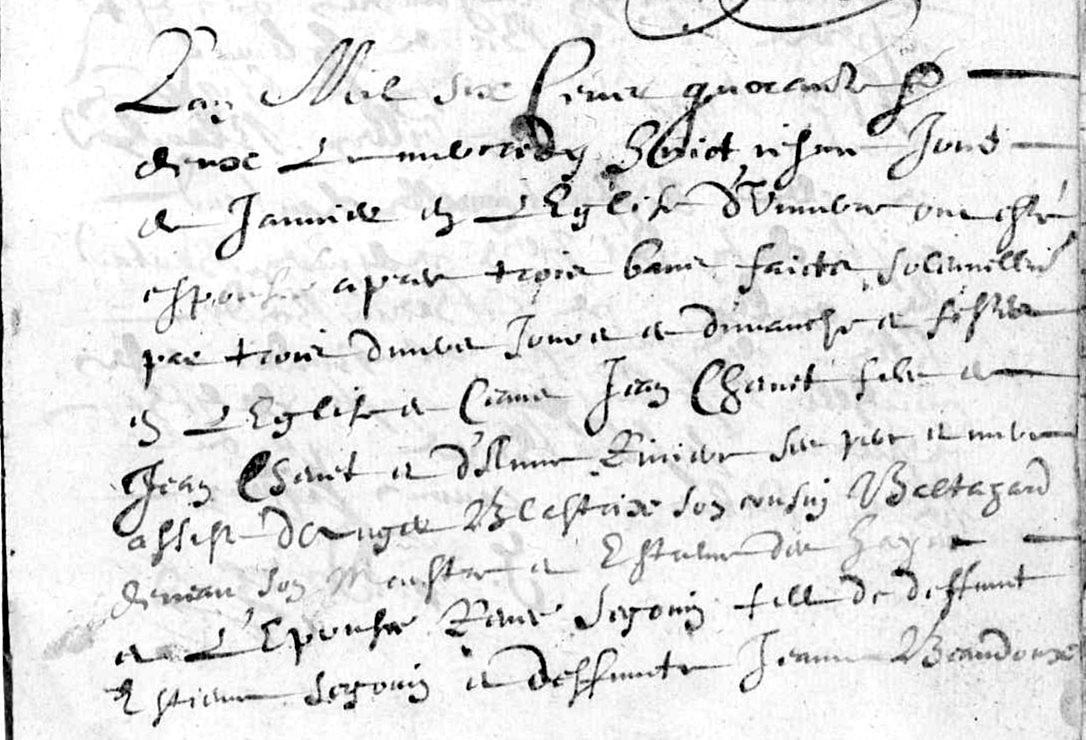 Lan Mil six Cens quarante &
deux Le mercredy Huict iesme Jour
de Janvier en L'Eglise d' ont esté
espousé apres trois bans faicts solemnelle
par trois divers Jours de dimanche et festes
en L'Eglise de Jean Chenet fils de
Jean Chenet et d'Anne Riviere ses pere et mere
assisté d'Auger son cousin Baltazard
son Maistre et Estienne des hayes
et L'Epouse Renee Segouin fille de deffunt
Estienne Segouin et deffunte Jeanne Beaudoux